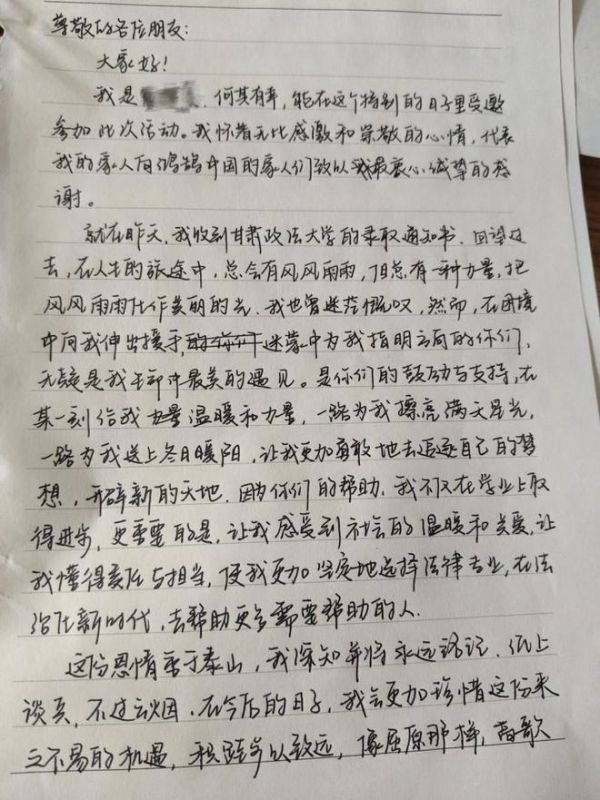 尊敬的各位朋友:
大家好!
我是 何其有幸,能在这个特别的日子里受邀
参加此次活动。我怀着无比感激和崇敬的心情,代表
我的家人向鸿鹄中国的家人们致以最衷心诚挚的感
谢。
就在昨天,我收到甘肃政法大学的录取通知书.回望过
去,在人生的旅途中,总会有风风雨雨,但总有一种力量,把
风风雨雨化作美丽的光.我也曾迷茫慨叹,然而,在困境
中向我伸出援手,迷蒙中为我指明方向的你们,
无疑是我生命中最美的遇见。是你们的鼓励与支持,在
某一刻给我温暖和力量,一路为我擦亮满天星光,
一路为我送上冬日暖阳,让我更加勇敢地去追逐自己的梦
想,开辟新的天地.因为你们的帮助.我不仅在学业上取
得进步,更重要的是,让我感受到社会的温暖和关爱,让
我懂得责任与担当,使我更加坚定地选择法律专业,在法
治化新时代,去帮助更多需要帮助的人.
这份恩情重于泰山,我深知并将永远铭记.纸上
谈兵,不过云烟.在今后的日子,我会更加珍惜这份来
之不易的机遇,积跬步以致远,像屈原那样,高歌